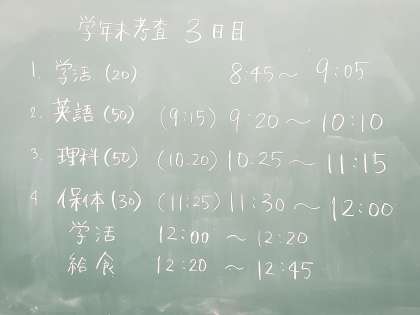 学年末考査 3日目
1. 学活 (20) 8:45～ 9:05
2. 英語 (50) (9:15) 9:20～ 10:10
3. 理科 (50) (10.20) 10.25～ 11:15
4 保体 (30) (11:25) 11:30～ 12:00
学活 12:00 ～ 12:20
給食 12:20 ～ 12:45